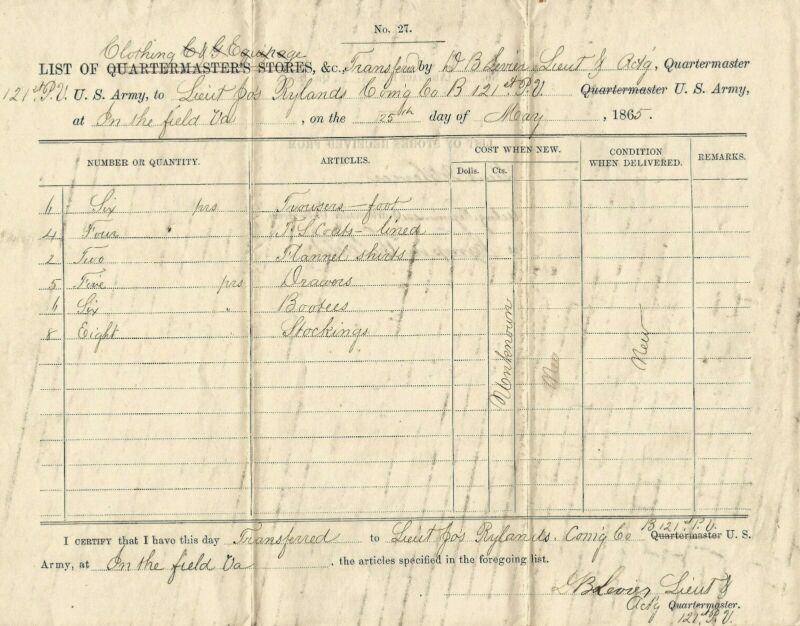 No. 27.
Clothing C & G Equipage
LIST OF QUARTERMASTER'S STORES, &c., Transferred by D B Levier Lieut & Act'g, Quartermaster
121st P.V. U. S. Army, to Lieut Jos Rylands Com'g Co B 121st P.V. Quartermaster U. S. Army,
at On the field Va, on the 25th day of May, 1865.
NUMBER OR QUANTITY. ARTICLES. COST WHEN NEW. CONDITION WHEN DELIVERED. REMARKS.
Dolls. Cts.
6 Six prs Trousers foot
4 Four " F S Coats lined
2 Two Flannel shirts
5 Five prs Drawers
6 Six " Bootees
8 Eight " Stockings
Unknown New New
I CERTIFY that I have this day Transferred to Lieut Jos Rylands. Com'g Co B 121st P.V. Quartermaster U. S.
Army, at On the field Va, the articles specified in the foregoing list.
D B Levier Lieut &
Act'g Quartermaster.
121st P.V.